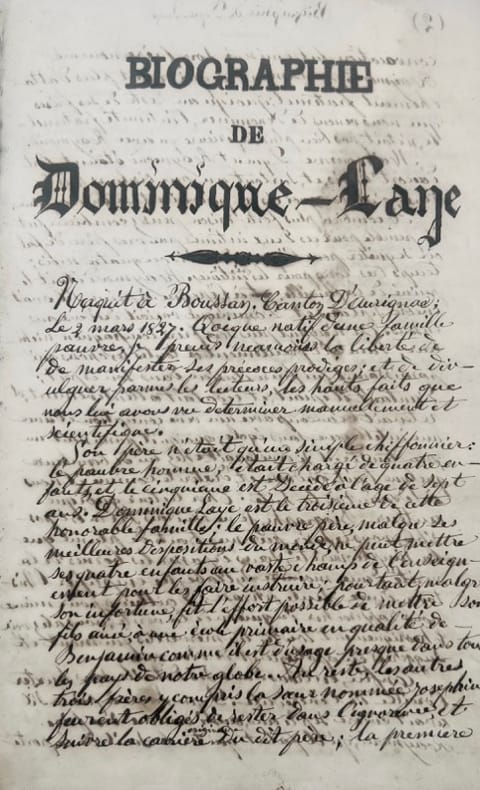 (2)
BIOGRAPHIE
DE
Dominique-Laye
Naquit à Boussan, Canton D'aurignac;
Le 2 mars 1827. Qoique natif d'une famille
pauvre, je prends neamoins la liberté de
de manifester ses précoces prodiges; et de div-
ulguer parmis les lecteurs, les hauts faits que
nous lui avons vu determiner manuellement et
scientifique.
Son père n'était qu'un simple chiffonnier:
le pauvre homme, etait chargé de quatre en-
fants, et le cinquieme est décédé à l'age de sept
ans. Dominique Laye est le troisieme de cette
honorable famille; le pauvre père, malgre ses
meilleures dispositions du monde, ne peut mettre
ses quatre enfants au vaste champs de l'enseign-
ement pour les faire instruire; pourtant, malgr
son infortune, fit l'effort possible de mettre son
fils ainé, à une école primaire en qualité de-
Benjamin comme il est d'usage presque dans tou
les pays de notre globe. Au reste, les autres
trois frères y compris la sœur nommée Josephin
feurent obligés de rester dans l'ignorance, et
suivre la carrière du dit père; la première